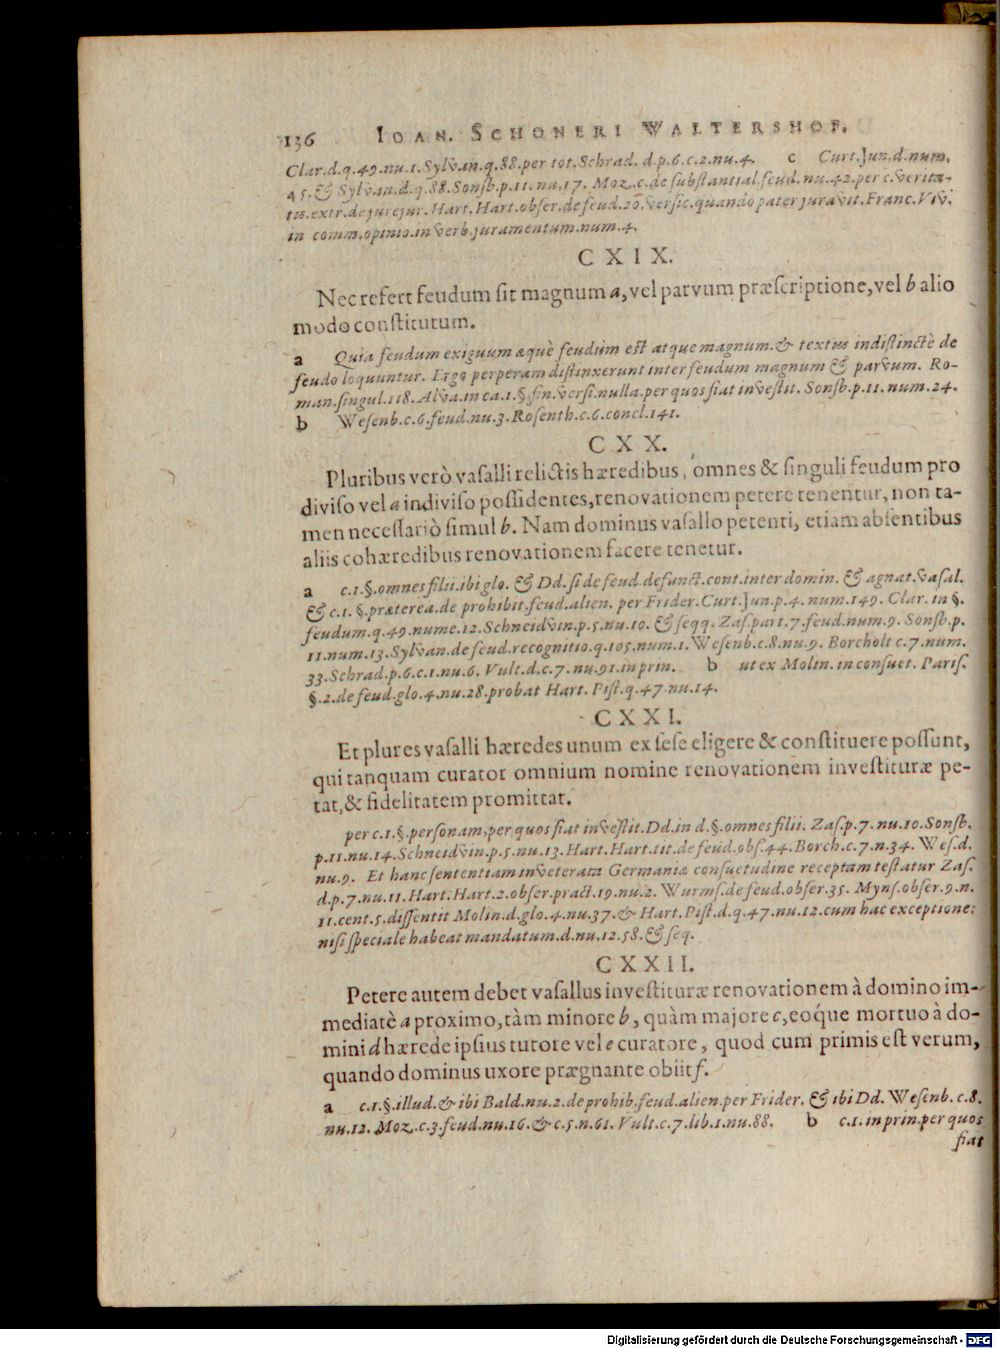 136 IOAN. SCHONERI WALTERSHOF.
Clar.d.q.49.nu.1.Sylvan.q.88.per tot.Schrad. d.p.6.c.2.nu.4. c Curt.Jun.d.num.
45.& Sylvan.d.q.88.Sonsb.p.11.nu.17. Moz.c.de substantial.feud.nu.42.per c.verita-
tis.extr.de jurejur.Hart.Hart.obser.de feud.20.versic.quando pater juravit.Franc.Viv.
in comm.opinio.in verb.juramentum.num.4.
CXIX.
Nec refert feudum sit magnum a, vel parvum præscriptione, vel b alio
modo constitutum.
a Quia feudum exiguum æquè feudum est atque magnum.& textus indistinctè de
feudo loquuntur. Ergo perperam distinxerunt inter feudum magnum & parvum. Ro-
man.singul.118.Alva.in ca.1.§.fin.versi.nulla.per quos fiat investit. Sonsb.p.11.num.24.
b Wesenb.c.6.feud.nu.3.Rosenth.c.6.concl.141.
CXX.
Pluribus verò vasalli relictis hæredibus, omnes & singuli feudum pro
diviso vel a indiviso possidentes, renovationem petere tenentur, non ta-
men necessariò simul b. Nam dominus vasallo petenti, etiam absentibus
aliis cohæredibus renovationem facere tenetur.
a c.1.§.omnes filii.ibi glo. & Dd.si de feud.defunct.cont.inter domin. & agnat.vasal.
& c.1. §.præterea.de prohibit.feud.alien. per Frider.Curt.Jun.p.4. num.149. Clar. in §.
feudum.q.49.nume.12.Schneidvvin.p.5.nu.10. & seqq. Zas.part.7.feud.num.9. Sonsb.p.
11.num.13.Sylvan.de feud.recognitio.q.105.num.1.Wesenb.c.8.nu.9. Borcholt c.7.num.
33.Schrad.p.6.c.1.nu.6. Vult.d.c.7.nu.91.in prin. b ut ex Molin. in consuet. Paris.
§.2.de feud.glo.4.nu.28.probat Hart. Pist.q.47.nu.14.
CXXI.
Et plures vasalli hæredes unum ex sese eligere & constituere possunt,
qui tanquam curator omnium nomine renovationem investituræ pe-
tat, & fidelitatem promittat.
per c.1.§.personam,per quos fiat investit.Dd.in d.§.omnes filii. Zas.p.7.nu.10.Sonsb.
p.11.nu.14.Schneidvvin.p.5.nu.13.Hart.Hart.tit.de feud.obs.44.Borch.c.7.n.34. Wes.d.
nu.9. Et hanc sententiam inveterata Germaniæ consuetudine receptam testatur Zas.
d.p.7.nu.11.Hart.Hart.2.obser.pract.19.nu.2. Wurms.de feud.obser.35. Myns.obser.9.n.
11.cent.5.dissentit Molin.d.glo.4.nu.37.& Hart.Pist.d.q.47.nu.12.cum hac exceptione:
nisi speciale habeat mandatum.d.nu.12.58.& seq.
CXXII.
Petere autem debet vasallus investituræ renovationem à domino im-
mediatè a proximo, tàm minore b, quàm majore c, eoq́ue mortuo à do-
mini d hærede ipsius tutore vel e curatore, quod cum primis est verum,
quando dominus uxore prægnante obiit f.
a c.1.§.illud.& ibi Bald.nu.2.de prohib.feud.alien.per Frider. & ibi Dd. Wesenb.c.8.
nu.12. Moz.c.3.feud.nu.16.& c.5.n.61. Vult.c.7.lib.1.nu.88. b c.1.in prin.per quos
fiat
Digitalisierung gefördert durch die Deutsche Forschungsgemeinschaft - DFG